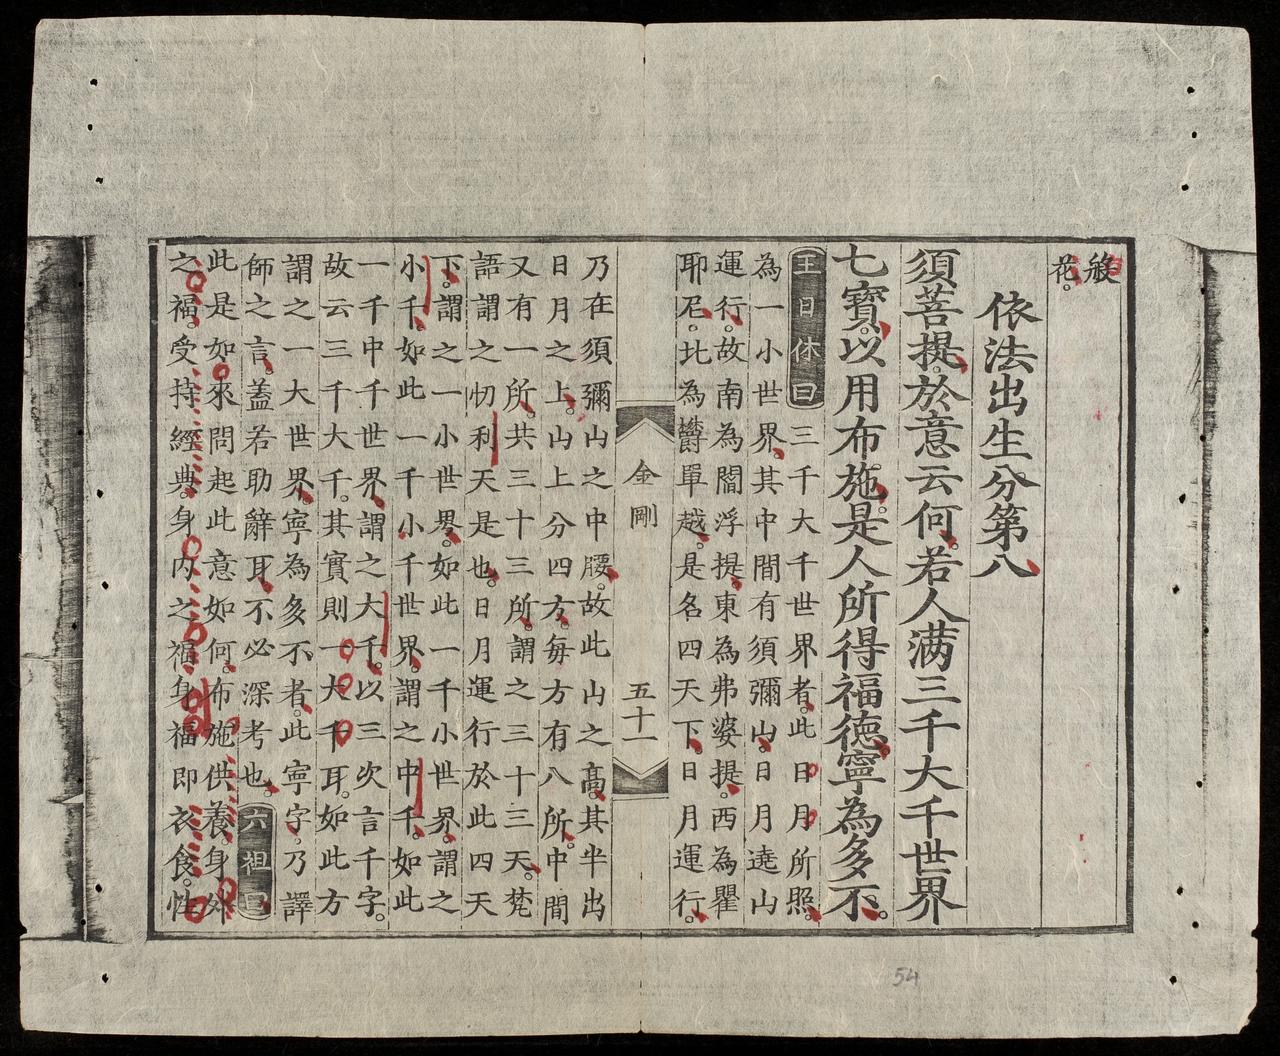 般
花。
依法出生分第八
須菩提。於意云何。若人满三千大千世界
七寶。以用布施。是人所得福德。寧為多不。
王日休曰三千大千世界者。此日月所照。
為一小世界。其中間有須彌山。日月遶山
運行。故南為閻浮提。東為弗婆提。西為瞿
耶尼。北為欝單越。是名四天下。日月運行。
金剛
五十一
乃在須彌山之中腰。故此山之高。其半出
日月之上。山上分四方。每方有八所。中間
又有一所。共三十三所。謂之三十三天。梵
語謂之忉利天是也。日月運行於此四天
下。謂之一小世界。如此一千小世界。謂之
小千。如此一千小千世界。謂之中千。如此
一千中千世界。謂之大千。以三次言千字。
故云三千大千。其實則一大千耳。如此方
謂之一大世界。寧為多不者。此寧字。乃譯
師之言。蓋若助辭耳。不必深考也。六祖曰
此是如來問起此意如何。布施供養。身外
之福。受持經典。身內之福。身福即衣食。性
54